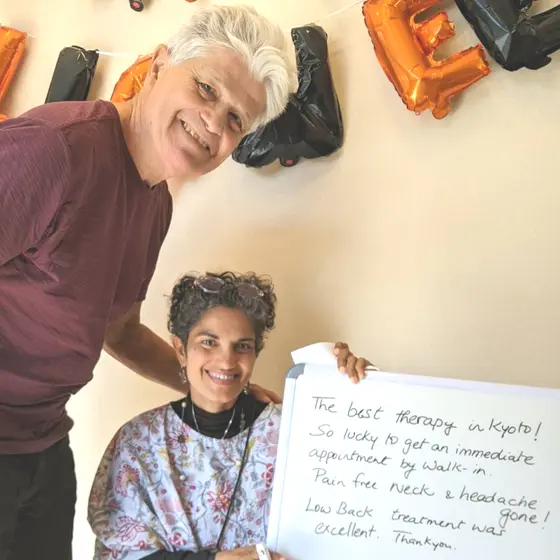 The best therapy in Kyoto!
So lucky to get an immediate
appointment by walk-in.
Pain free Neck & headache
gone!
Low Back treatment was
excellent. Thankyou.